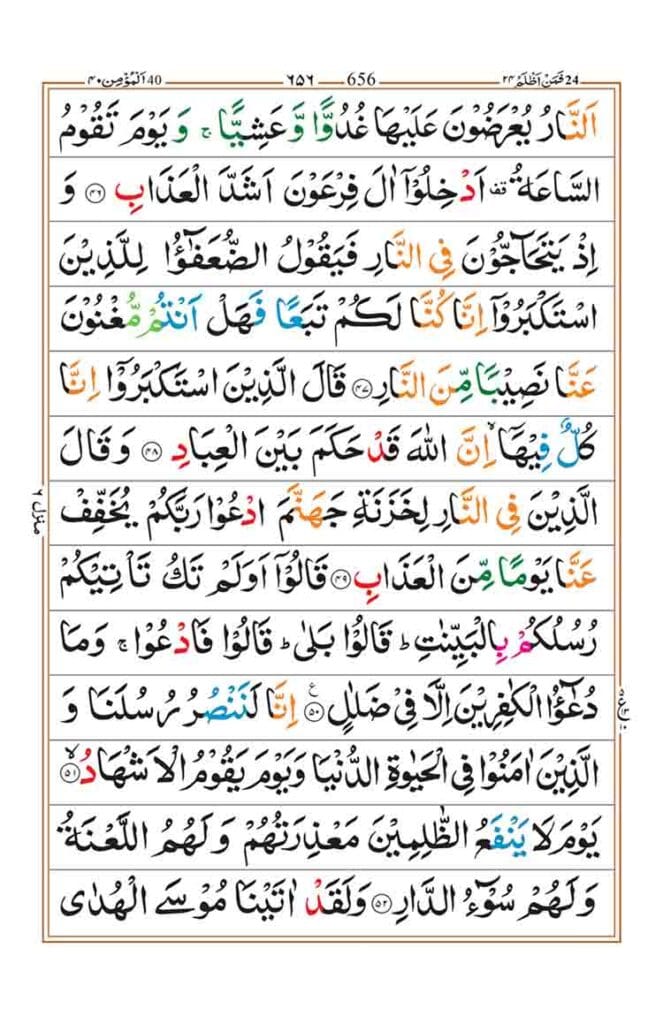 40 اَلْمُؤْمِن ۴۰ ۶۵۶ 656 فَمَنْ اَظْلَمُ ۲۴ 24
اَلنَّارُ يُعْرَضُوْنَ عَلَيْهَا غُدُوًّا وَّ عَشِيًّا ۚ وَ يَوْمَ تَقُوْمُ
السَّاعَةُ ۫ اَدْخِلُوْۤا اٰلَ فِرْعَوْنَ اَشَدَّ الْعَذَابِ ﴿۴۶﴾ وَ
اِذْ يَتَحَآجُّوْنَ فِي النَّارِ فَيَقُوْلُ الضُّعَفٰٓؤُا لِلَّذِيْنَ
اسْتَكْبَرُوْۤا اِنَّا كُنَّا لَكُمْ تَبَعًا فَهَلْ اَنْتُمْ مُّغْنُوْنَ
عَنَّا نَصِيْبًا مِّنَ النَّارِ ﴿۴۷﴾ قَالَ الَّذِيْنَ اسْتَكْبَرُوْۤا اِنَّا
كُلٌّ فِيْهَاۤ ۙ اِنَّ اللّٰهَ قَدْ حَكَمَ بَيْنَ الْعِبَادِ ﴿۴۸﴾ وَ قَالَ
الَّذِيْنَ فِي النَّارِ لِخَزَنَةِ جَهَنَّمَ ادْعُوْا رَبَّكُمْ يُخَفِّفْ
عَنَّا يَوْمًا مِّنَ الْعَذَابِ ﴿۴۹﴾ قَالُوْۤا اَوَلَمْ تَكُ تَاْتِيْكُمْ
رُسُلُكُمْ بِالْبَيِّنٰتِ ؕ قَالُوْا بَلٰى ؕ قَالُوْا فَادْعُوْا ۚ وَمَا
دُعٰٓؤُا الْكٰفِرِيْنَ اِلَّا فِيْ ضَلٰلٍ ﴿۵۰﴾ ع اِنَّا لَنَنْصُرُ رُسُلَنَا وَ
الَّذِيْنَ اٰمَنُوْا فِي الْحَيٰوةِ الدُّنْيَا وَيَوْمَ يَقُوْمُ الْاَشْهَادُ ۙ﴿۵۱﴾
يَوْمَ لَا يَنْفَعُ الظّٰلِمِيْنَ مَعْذِرَتُهُمْ وَلَهُمُ اللَّعْنَةُ
وَلَهُمْ سُوْٓءُ الدَّارِ ﴿۵۲﴾ وَلَقَدْ اٰتَيْنَا مُوْسَى الْهُدٰى
منزل ۶